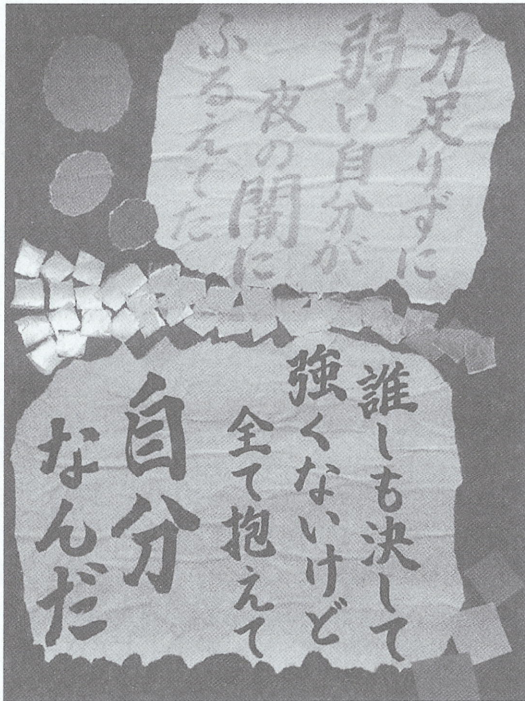 力足りずに
弱い自分が
夜の闇に
ふるえてた
誰しも決して
強くないけど
全て抱えて
自分
なんだ